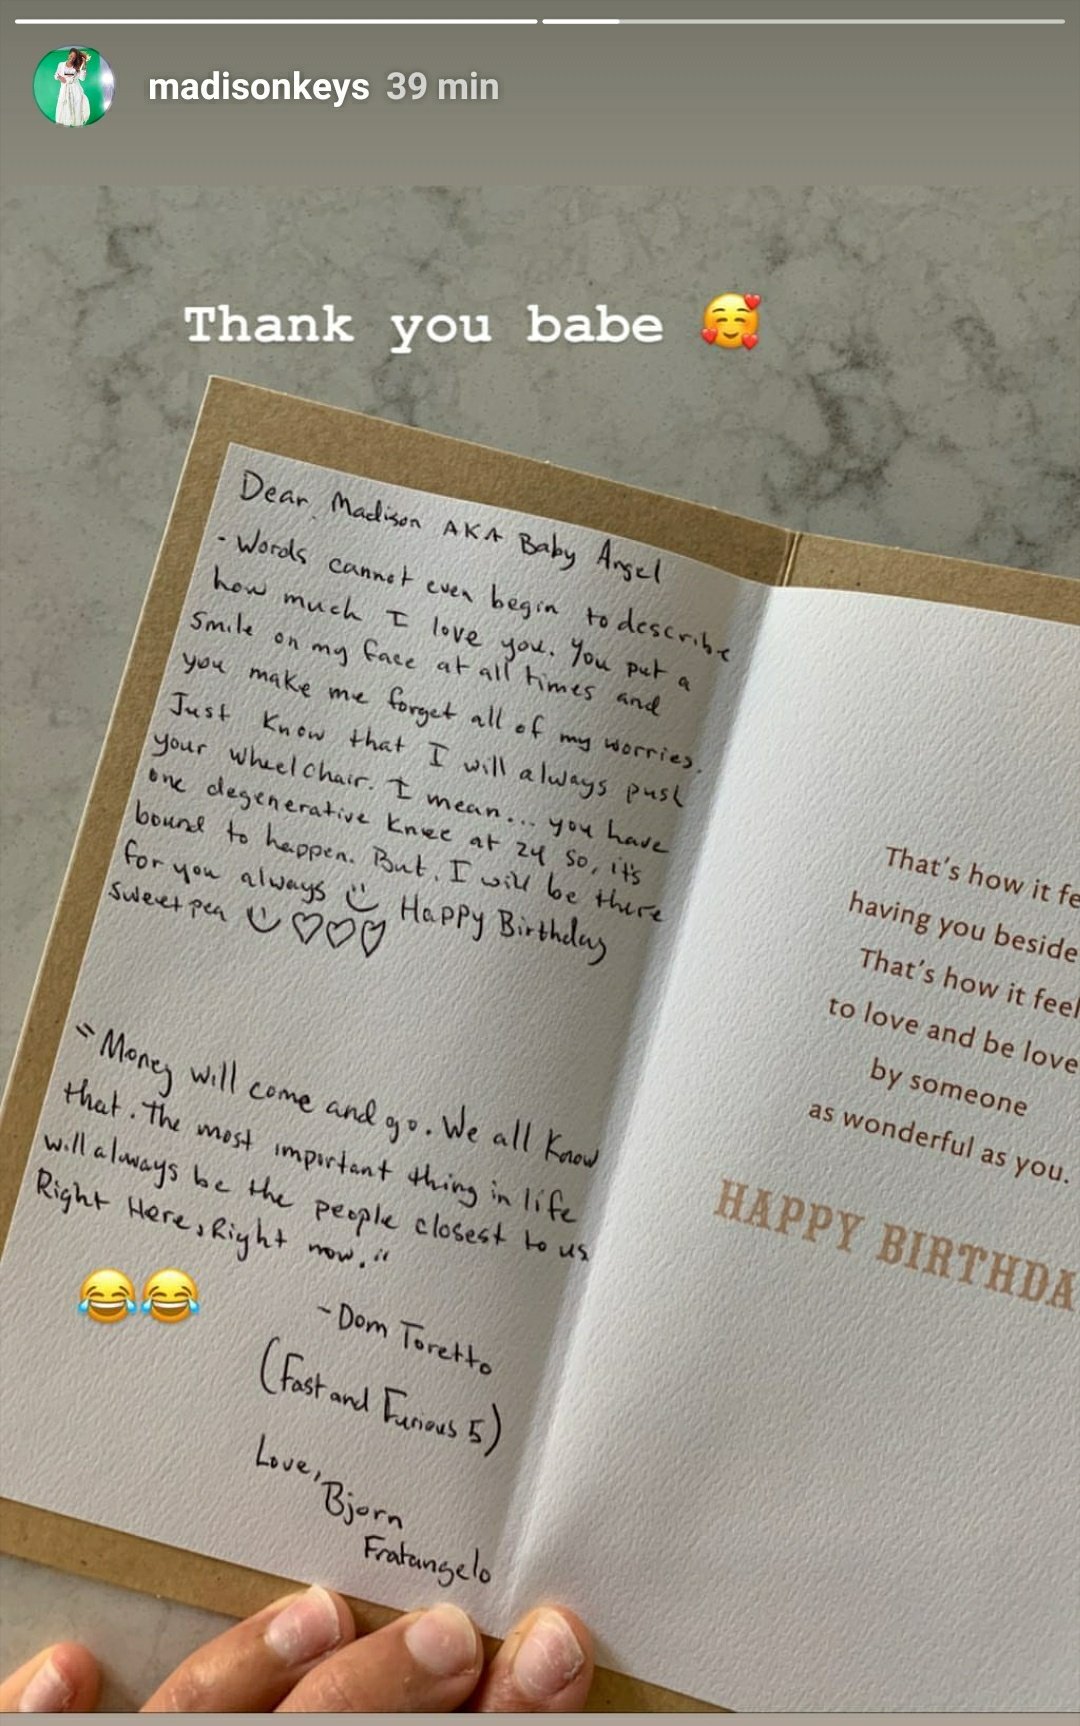 madisonkeys 39 min
Thank you babe 🥰
Dear, Madison AKA Baby Angel
- Words cannot even begin to describe
how much I love you. You put a
smile on my face at all times and
you make me forget all of my worries.
Just know that I will always push
your wheelchair. I mean... you have
one degenerative knee at 24 so, it's
bound to happen. But, I will be there
for you always :) Happy Birthday
sweetpea :) ♡♡♡
"Money will come and go. We all know
that. The most important thing in life
will always be the people closest to us
Right Here, Right now."
😂😂
- Dom Toretto
(Fast and Furious 5)
Love,
Bjorn
Fratangelo
That's how it fe
having you beside
That's how it feel
to love and be love
by someone
as wonderful as you.
HAPPY BIRTHDA